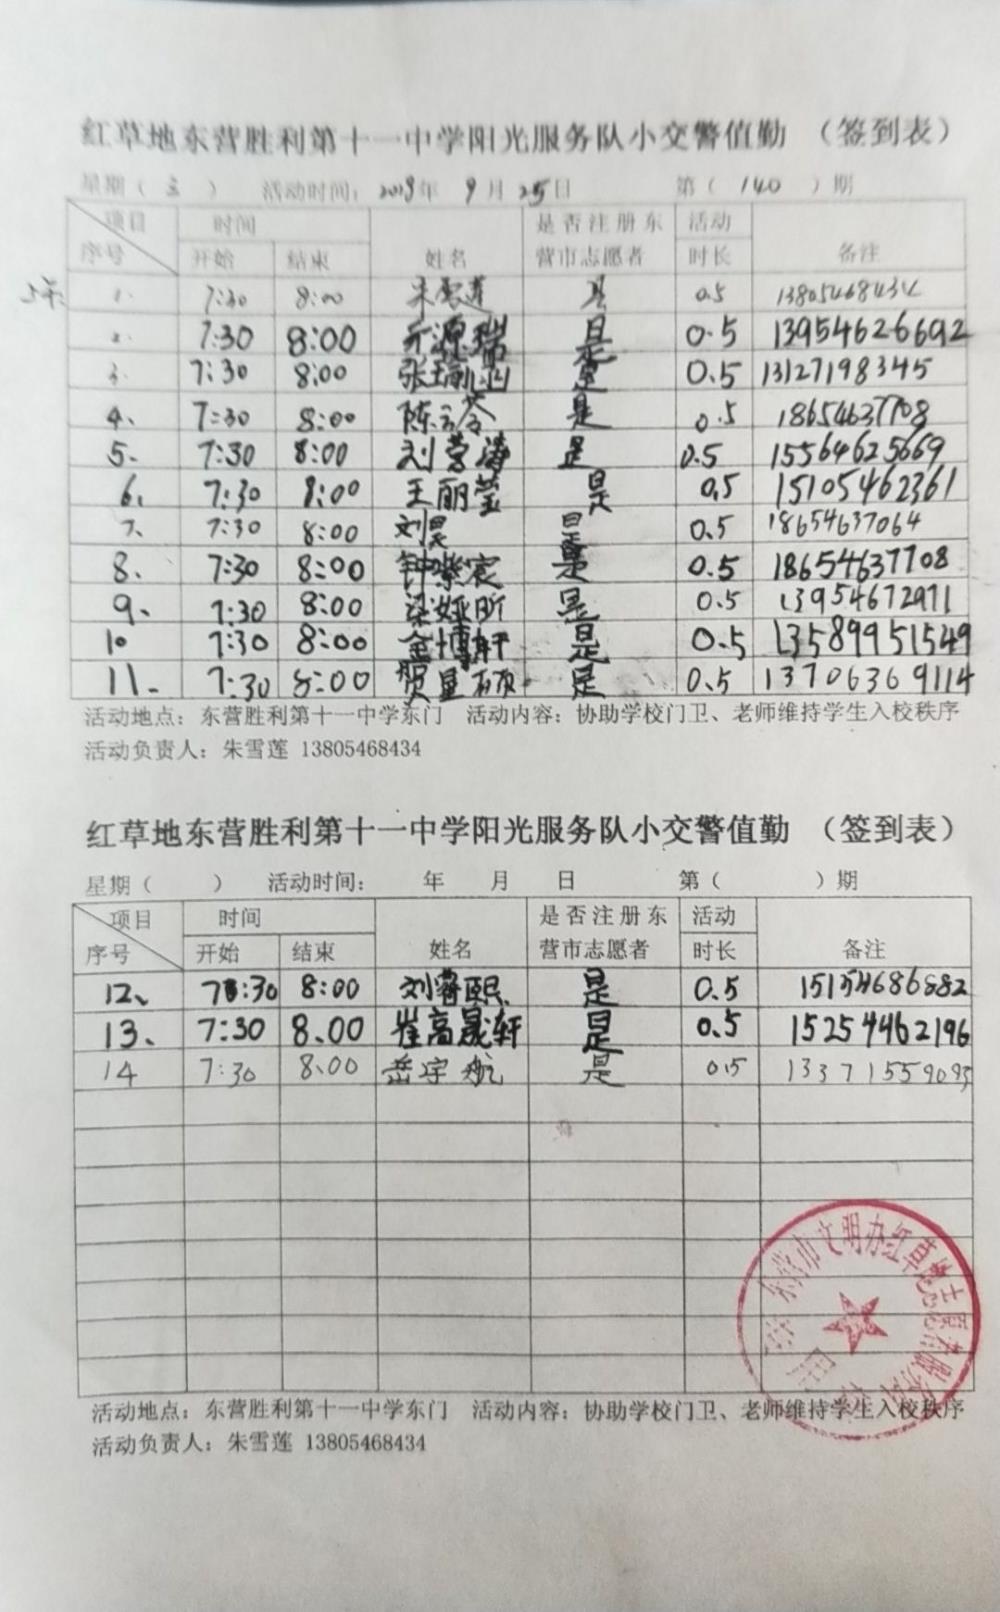 红草地东营胜利第十一中学阳光服务队小交警值勤 （签到表）
星期（ 三 ） 活动时间：2019年 9月 25日 第（ 140 ）期
项目 时间 是否注册东 活动
序号 开始 结束 姓名 营市志愿者 时长 备注
1. 7:30 8:00 朱雪莲 是 0.5 13805468434
2. 7:30 8:00 亓源瑞 是 0.5 13954626692
3. 7:30 8:00 张瑞 是 0.5 13127198345
4. 7:30 8:00 陈云苓 是 0.5 18654637708
5. 7:30 8:00 刘营涛 是 0.5 15564625669
6. 7:30 8:00 王丽莹 是 0.5 15105462361
7. 7:30 8:00 刘昊 是 0.5 18654637064
8. 7:30 8:00 钟紫宸 是 0.5 18654637708
9. 7:30 8:00 梁娅昕 是 0.5 13954672971
10 7:30 8:00 金博轩 是 0.5 13589951549
11. 7:30 8:00 贺星硕 是 0.5 13706369114
活动地点：东营胜利第十一中学东门 活动内容：协助学校门卫、老师维持学生入校秩序
活动负责人：朱雪莲 13805468434
红草地东营胜利第十一中学阳光服务队小交警值勤 （签到表）
星期（ ） 活动时间： 年 月 日 第（ ）期
项目 时间 是否注册东 活动
序号 开始 结束 姓名 营市志愿者 时长 备注
12、 7:30 8:00 刘睿熙 是 0.5 15154686882
13、 7:30 8.00 崔高晟轩 是 0.5 15254462196
14 7:30 8:00 岳宇航 是 0.5 13371559093
东营市文明办红草地志愿者服务
活动地点：东营胜利第十一中学东门 活动内容：协助学校门卫、老师维持学生入校秩序
活动负责人：朱雪莲 13805468434